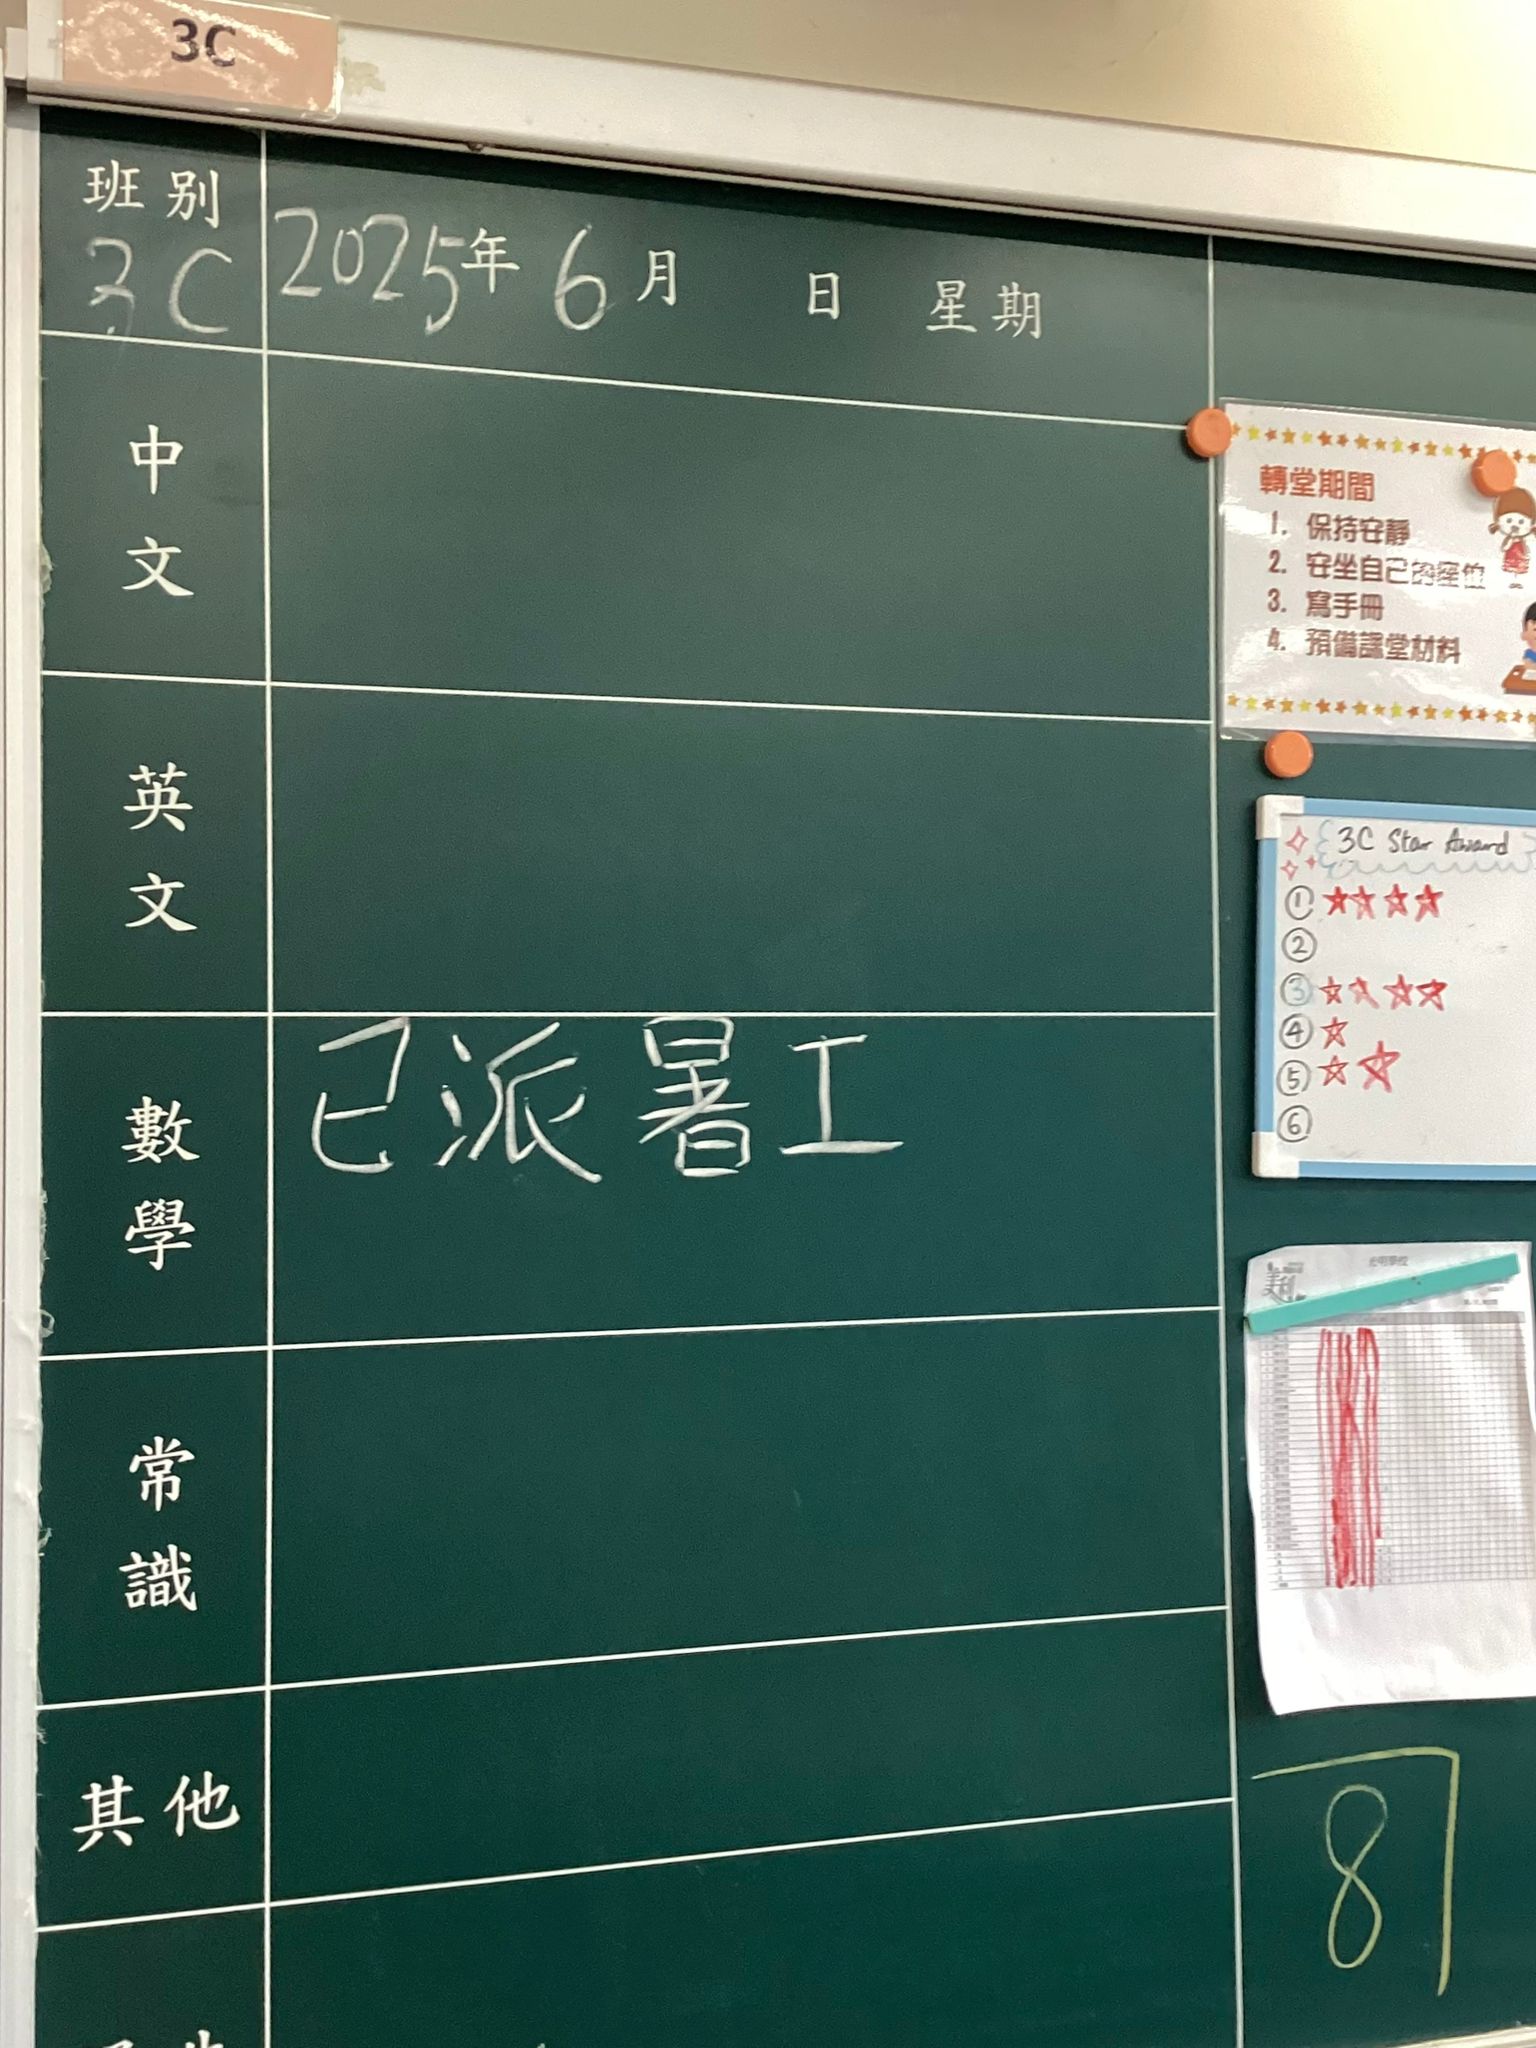 3C
班別
3C
2025年 6月 日 星期
中文
英文
數學
已派暑工
常識
其他
轉堂期間
1. 保持安靜
2. 安坐自己的座位
3. 寫手冊
4. 預備課堂材料
3C Star Award
①
②
③
④
⑤
⑥
87